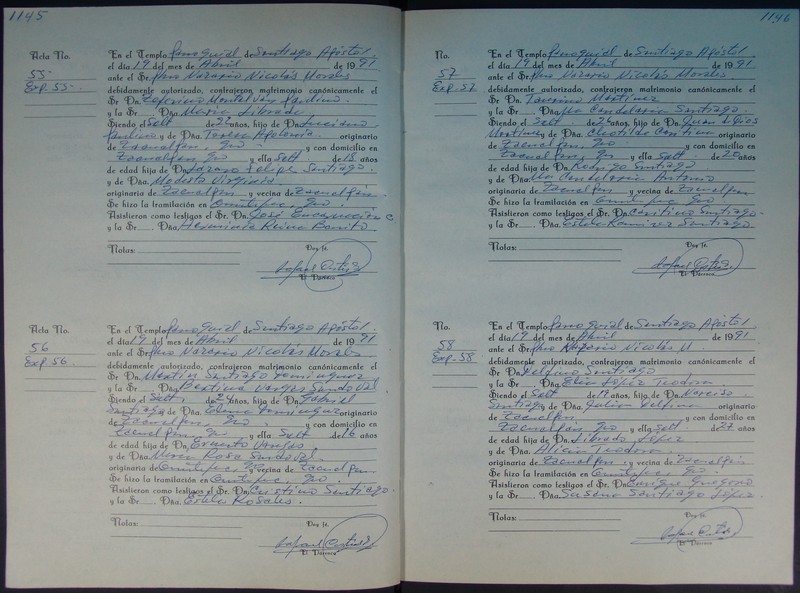 1145
Acta No.
55-
Exp. 55-.
En el Templo Parroquial de Santiago Apóstol
el día 19 del mes de Abril de 1991
ante el Sr. Nazario Nicolás Morales
debidamente autorizado, contrajeron matrimonio canónicamente el
Sr Dn. Ceferino Paulino
y la Sr Dña. María Librada
Siendo el Solt de 22 años, hijo de Dn. Feliciano
Paulino y de Dña. Teresa Apolonia originario
de Tzcualpan, Gro y con domicilio
Gro y ella Solt de 18 años
de edad hija de Dn. Lázaro Felipe Santiago
y de Dña. Modesta Virginia
originaria de y vecina de
Se hizo la tramitación en Ometepec, Gro.
Asistieron como testigos el Sr. Dn. José Encarnación C.
y la Sr Dña. Herminia Reina Benito
Notas:
Doy fe.
Rafael
El Párroco
Acta No.
56
Exp 56.
En el Templo Parroquial de Santiago Apóstol
el día 19 del mes de Abril de 1991
ante el Sr. Nazario Nicolás Morales
debidamente autorizado, contrajeron matrimonio canónicamente el
Sr Dn. Martín Santiago Domínguez
y la Sr Dña. Bertina Vargas Sandoval
Siendo el Solt. de 24 años, hijo de Dn. Gabriel
Santiago y de Dña. Domínguez originario
de Gro. y con domicilio
Gro y ella Solt de 16 años
de edad hija de Dn. Ernesto Vargas
y de Dña. María Rosa Sandoval
originaria de Ometepec, Gro y vecina de
Se hizo la tramitación en Ometepec, Gro.
Asistieron como testigos el Sr. Dn. Cristino Santiago
y la Sr Dña. Estela Rosales.
Notas:
Doy fe.
Rafael
El Párroco
1146
No.
57
Exp. 57
En el Templo Parroquial de Santiago Apóstol
el día 19 del mes de Abril de 1991
ante el Sr. Nazario Nicolás Morales
debidamente autorizado, contrajeron matrimonio canónicamente el
Sr Dn. Martínez
y la Sr Dña. Ma Candelaria Santiago.
Siendo el Solt de 26 años, hijo de Dn. Juan de Dios
Martínez y de Dña. Cleotilde originario
de Gro. y con domicilio
Gro y ella Solt de 20 años
de edad hija de Dn. Rodrigo Santiago
y de Dña. Ma Candelaria Antonio
originaria de y vecina de
Se hizo la tramitación en Ometepec Gro
Asistieron como testigos el Sr. Dn. Santiago
y la Sr Dña. Estela Ramírez Santiago
Notas:
Doy fe.
Rafael
El Párroco
No.
58
Exp. 58
En el Templo Parroquial de Santiago Apóstol
el día 19 del mes de Abril de 1991
ante el Sr. Nazario Nicolás M.
debidamente autorizado, contrajeron matrimonio canónicamente el
Sr Dn. Delfino Santiago
y la Sr Dña. Elia López Teodora
Siendo el Solt de 19 años, hijo de Dn. Narciso
Santiago y de Dña. Delfina originario
de y con domicilio
Gro y ella Solt de 27 años
de edad hija de Dn. Librado López
y de Dña. Alicia Teodora
originaria de y vecina de
Se hizo la tramitación en Ometepec, Gro
Asistieron como testigos el Sr. Dn. Enrique Gregorio
y la Sr Dña. Susana Santiago López
Notas:
Doy fe.
Rafael
El Párroco